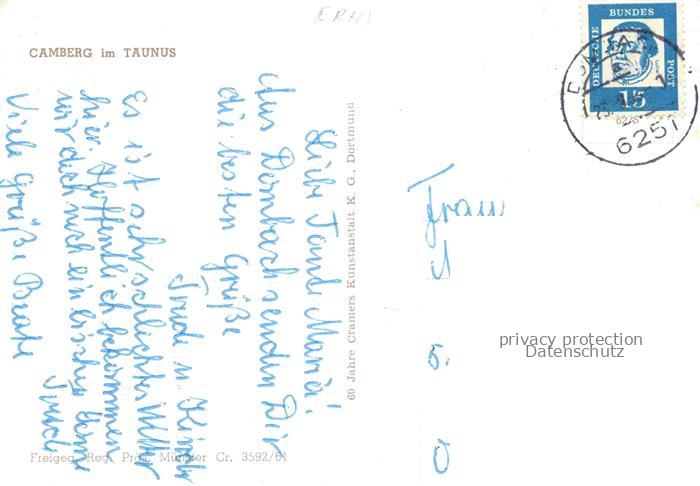 ERH
CAMBERG im TAUNUS
DEUTSCHE BUNDES POST
15
6251
Liebe Tante Maria!
Aus Dombach senden Dir
die besten Grüße
Trude u. Kinder
Es ist sehr schlechtes Wetter
hier. Hoffentlich bekommen
wir doch noch ein bisschen Sonne
Trude
Viele Grüße Beate
60 Jahre Cramers Kunstanstalt K. G., Dortmund
Frau
5.
privacy protection
Datenschutz
Freigeg. Reg. Präs. Münster Cr. 3592/61